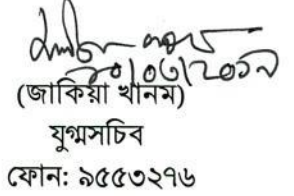 ২০/০৩/২০১৯
(জাকিয়া খানম)
যুগ্মসচিব
ফোন: ৯৫৫৩২৭৬